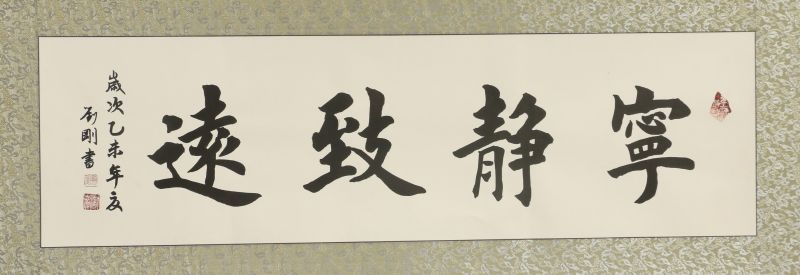 寧靜致遠
歲次乙未年夏
劉剛書